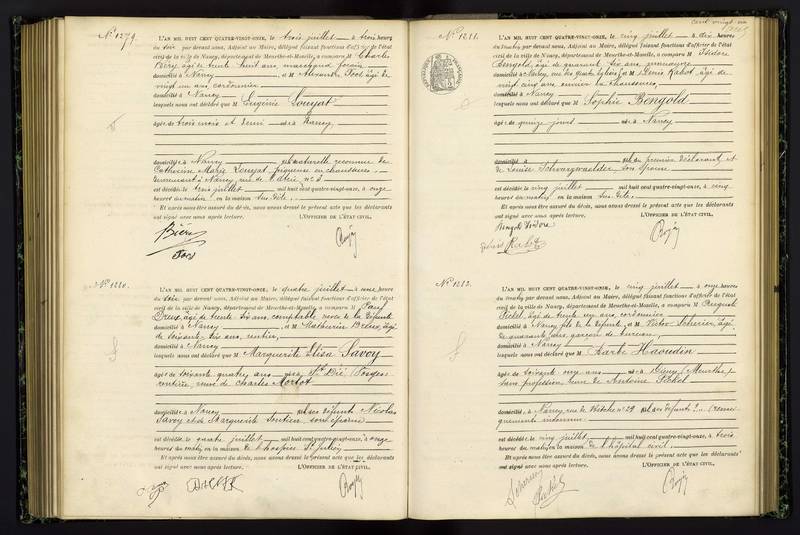 N° 1279.
L'AN MIL HUIT CENT QUATRE-VINGT-ONZE, le trois juillet à trois heures
du soir par devant nous, Adjoint au Maire, délégué faisant fonctions d'officier de l'état
civil de la ville de Nancy, département de Meurthe-et-Moselle, a comparu M Charles
âgé de trente huit ans, marchand forain
domicilié à Nancy et M Alexandre âgé de
vingt un ans, cordonnier
domicilié à Nancy
lesquels nous ont déclaré que M Eugénie Louyat
âgée de trois mois et demi née à Nancy,
domiciliée à Nancy fille naturelle reconnue de
Catherine Marie Louyat piqueuse en chaussures,
demeurant à Nancy, rue de
est décédée le trois juillet mil huit cent quatre-vingt-onze, à onze
heures du matin en la maison sus-dite.
Et après nous être assuré du décès, nous avons dressé le présent acte que les déclarants
ont signé avec nous après lecture. L'OFFICIER DE L'ÉTAT CIVIL,
N° 1280.
L'AN MIL HUIT CENT QUATRE-VINGT-ONZE, le quatre juillet à une heure
du soir par devant nous, Adjoint au Maire, délégué faisant fonctions d'officier de l'état
civil de la ville de Nancy, département de Meurthe-et-Moselle, a comparu M Paul
âgé de trente six ans, comptable neveu de la défunte
domicilié à Nancy et M Mathurin âgé
de soixante six ans, rentier,
domicilié à Nancy
lesquels nous ont déclaré que M Marguerite Elisa Savoy
âgée de soixante quatre ans née à St Dié (Vosges)
rentière, veuve de Charles
domiciliée à Nancy fille des défunts Nicolas
Savoy et de Marguerite son épouse
est décédée le quatre juillet mil huit cent quatre-vingt-onze, à onze
heures du matin en la maison de l'hospice St Julien
Et après nous être assuré du décès, nous avons dressé le présent acte que les déclarants
ont signé avec nous après lecture. L'OFFICIER DE L'ÉTAT CIVIL,
cent vingt un
N° 1281.
L'AN MIL HUIT CENT QUATRE-VINGT-ONZE, le cinq juillet à dix heures
du matin par devant nous, Adjoint au Maire, délégué faisant fonctions d'officier de l'état
civil de la ville de Nancy, département de Meurthe-et-Moselle, a comparu M Isidore
Bengold, âgé de quarante six ans
domicilié à Nancy, rue des quatre églises et M Denis Rabot âgé de
vingt cinq ans, ouvrier en chaussures,
domicilié à Nancy
lesquels nous ont déclaré que M Sophie Bengold
âgée de quinze jours née à Nancy
domiciliée à fille du premier déclarant et
de Louise Schwarzwaelder, son épouse
est décédée le cinq juillet mil huit cent quatre-vingt-onze, à cinq
heures du matin en la maison sus-dite.
Et après nous être assuré du décès, nous avons dressé le présent acte que les déclarants
ont signé avec nous après lecture. L'OFFICIER DE L'ÉTAT CIVIL,
Bengold Isidore
Rabot
N° 1282.
L'AN MIL HUIT CENT QUATRE-VINGT-ONZE, le cinq juillet à onze heures
du matin par devant nous, Adjoint au Maire, délégué faisant fonctions d'officier de l'état
civil de la ville de Nancy, département de Meurthe-et-Moselle, a comparu M Auguste
âgé de trente un ans, cordonnier
domicilié à Nancy fils de la défunte et M Victor Scherier âgé
de quarante ans, garçon de bureau,
domicilié à Nancy
lesquels nous ont déclaré que M Barbe Haoudin
âgée de soixante onze ans née à Dieuze (Meurthe)
sans profession, veuve de Antoine
domiciliée à Nancy, rue de n° 29 fille des défunts
est décédée le cinq juillet mil huit cent quatre-vingt-onze, à trois
heures du matin en la maison de l'hôpital civil.
Et après nous être assuré du décès, nous avons dressé le présent acte que les déclarants
ont signé avec nous après lecture. L'OFFICIER DE L'ÉTAT CIVIL,